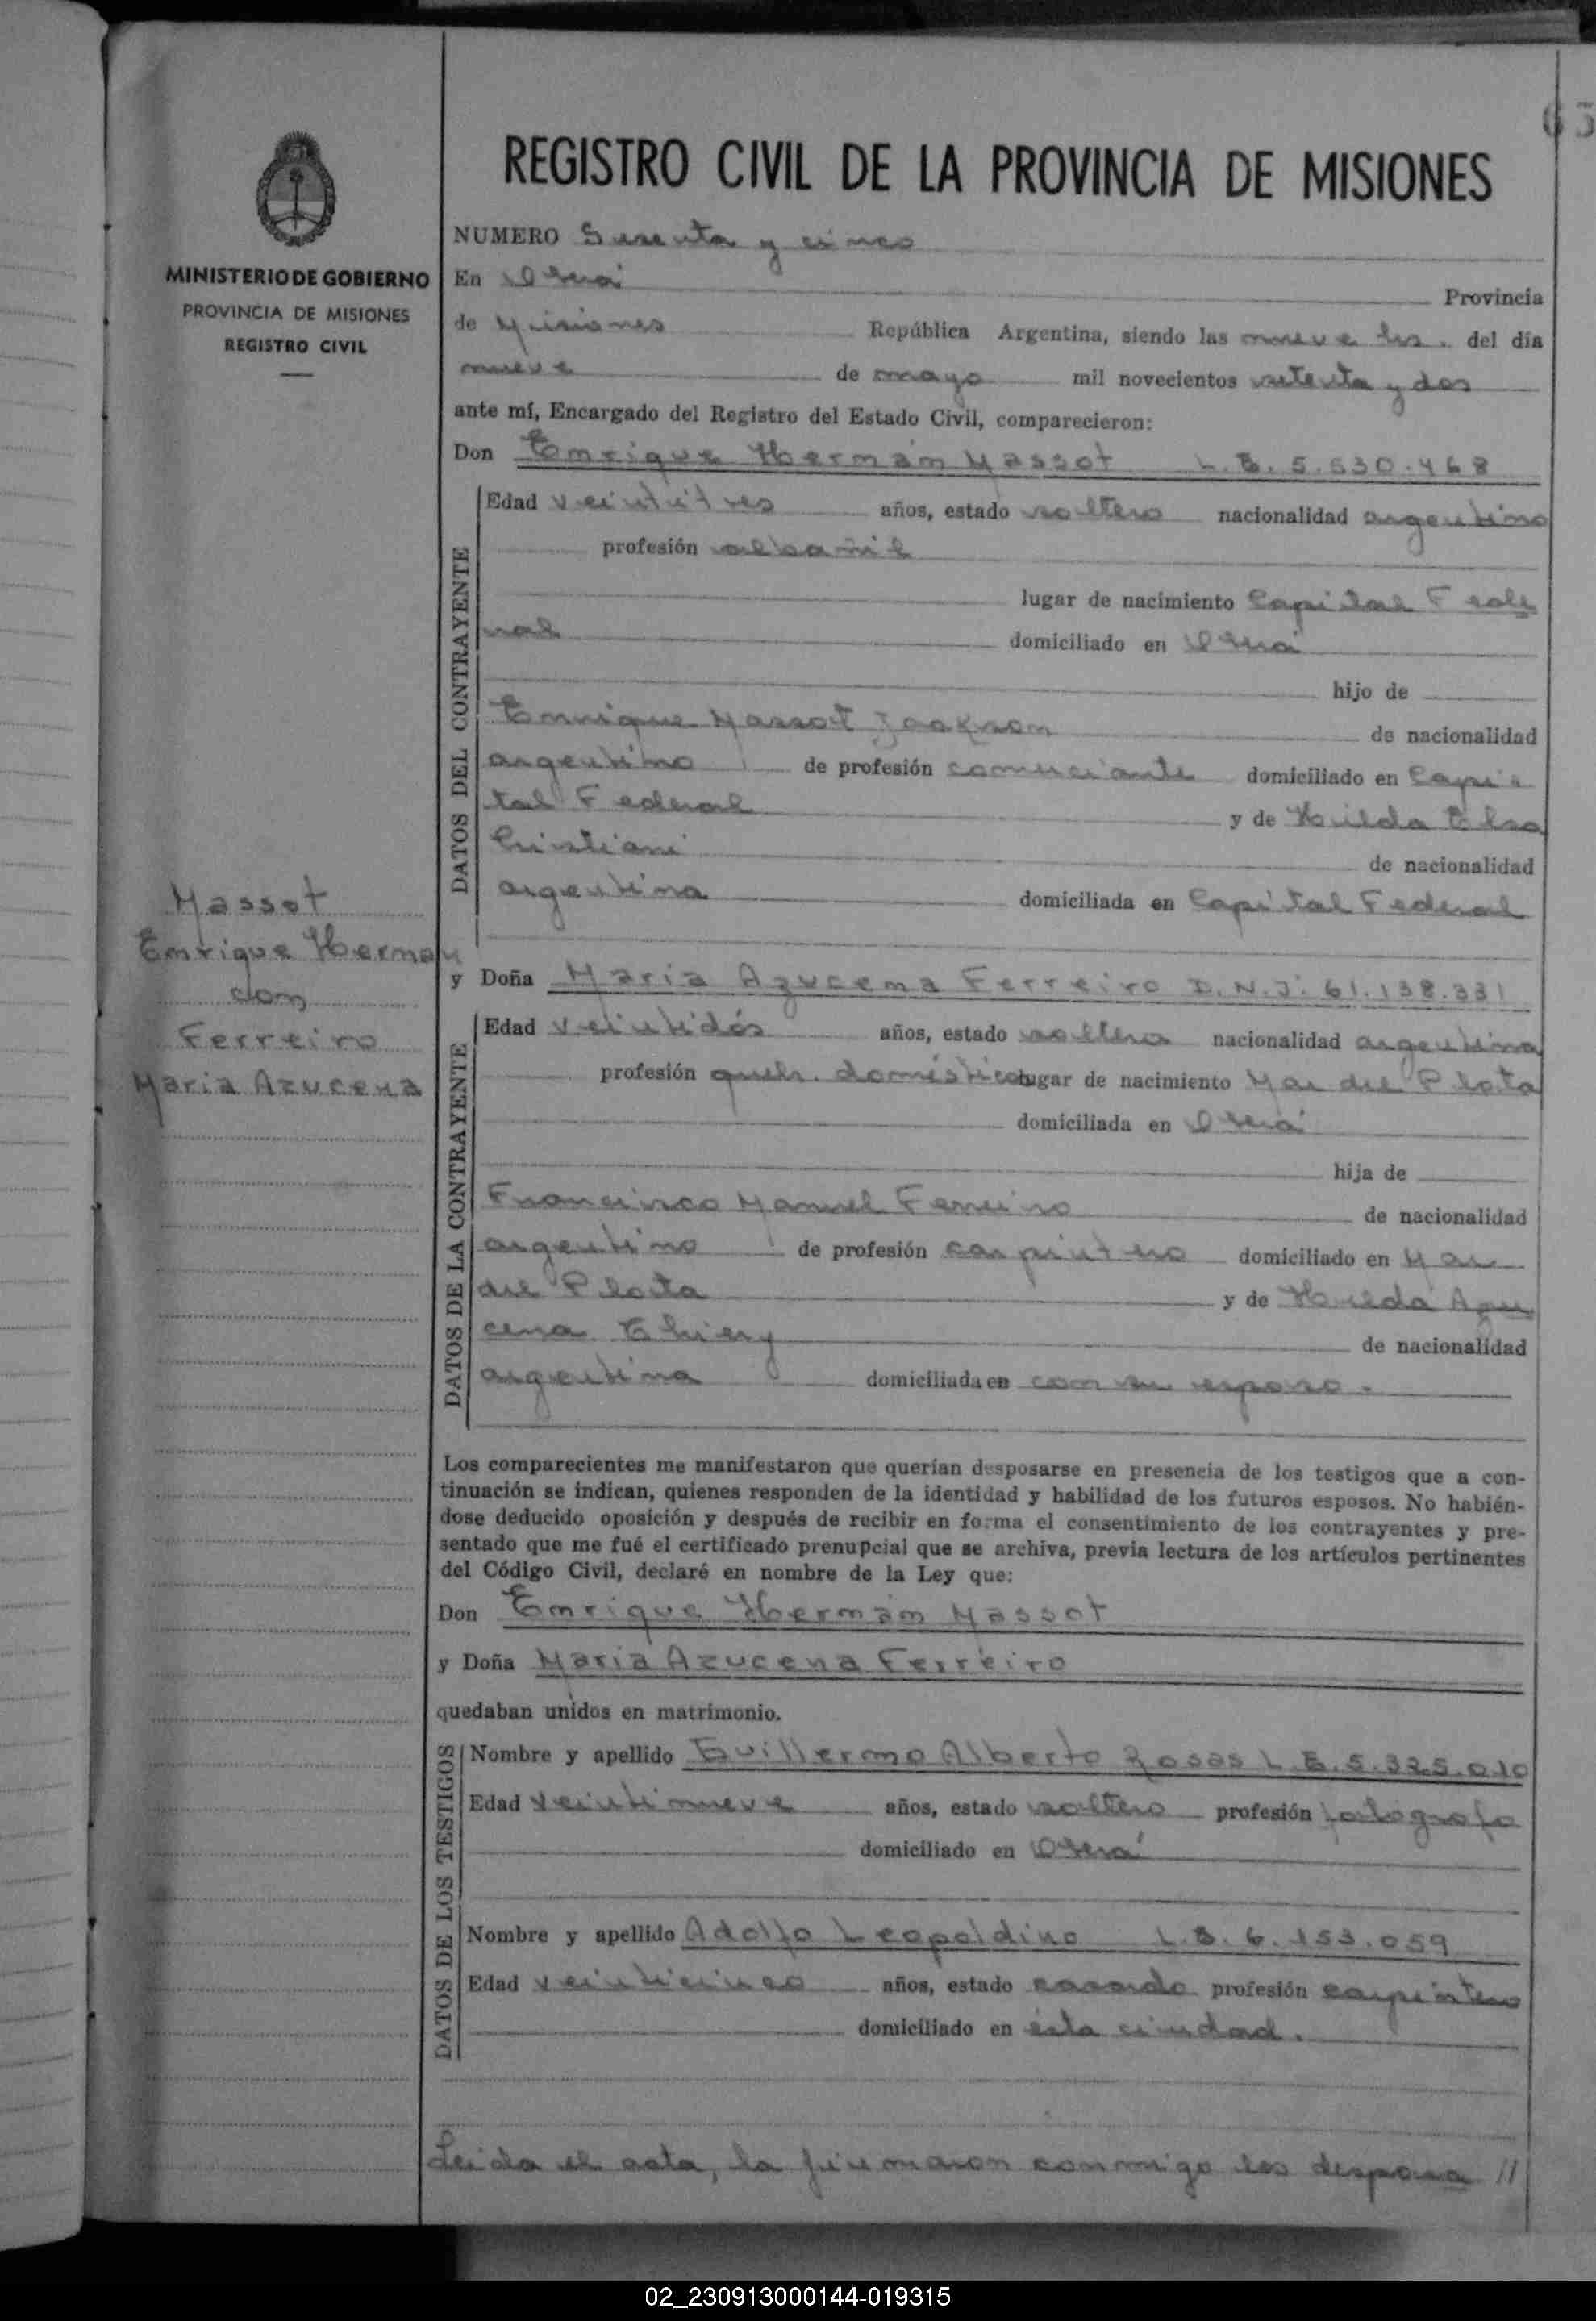 63
REGISTRO CIVIL DE LA PROVINCIA DE MISIONES
MINISTERIO DE GOBIERNO
PROVINCIA DE MISIONES
REGISTRO CIVIL
NUMERO Sesenta y cinco
En Oberá Provincia
de Misiones República Argentina, siendo las nueve hs. del día
nueve de mayo mil novecientos setenta y dos
ante mí, Encargado del Registro del Estado Civil, comparecieron:
Don Enrique Hernán Massot L.E. 5.530.468
DATOS DEL CONTRAYENTE
Edad veintitres años, estado soltero nacionalidad argentino
profesión albañil
lugar de nacimiento Capital Fede
ral domiciliado en Oberá
hijo de
Enrique Massot Jackson de nacionalidad
argentino de profesión comerciante domiciliado en Capi
tal Federal y de Hilda Elsa
Cristiani de nacionalidad
argentina domiciliada en Capital Federal
Massot
Enrique Hernan
con
Ferreiro
Maria Azucena
y Doña Maria Azucena Ferreiro D.N.I. 61.138.331
DATOS DE LA CONTRAYENTE
Edad veintidós años, estado soltera nacionalidad argentina
profesión queh. domésticos lugar de nacimiento Mar del Plata
domiciliada en Oberá
hija de
Francisco Manuel Ferreiro de nacionalidad
argentino de profesión carpintero domiciliado en Mar
del Plata y de Hilda Azu
cena de nacionalidad
argentina domiciliada en con su esposo.
Los comparecientes me manifestaron que querían desposarse en presencia de los testigos que a con-
tinuación se indican, quienes responden de la identidad y habilidad de los futuros esposos. No habién-
dose deducido oposición y después de recibir en forma el consentimiento de los contrayentes y pre-
sentado que me fué el certificado prenupcial que se archiva, previa lectura de los artículos pertinentes
del Código Civil, declaré en nombre de la Ley que:
Don Enrique Hernán Massot
y Doña Maria Azucena Ferreiro
quedaban unidos en matrimonio.
DATOS DE LOS TESTIGOS
Nombre y apellido Guillermo Alberto Rosas L.E. 5.325.010
Edad veintinueve años, estado soltero profesión fotógrafo
domiciliado en Oberá
Nombre y apellido Adolfo Leopoldino L.E. 6.153.059
Edad veinticinco años, estado casado profesión carpintero
domiciliado en ésta ciudad.
Leida el acta, la firmaron conmigo los desposa //
02_230913000144-019315